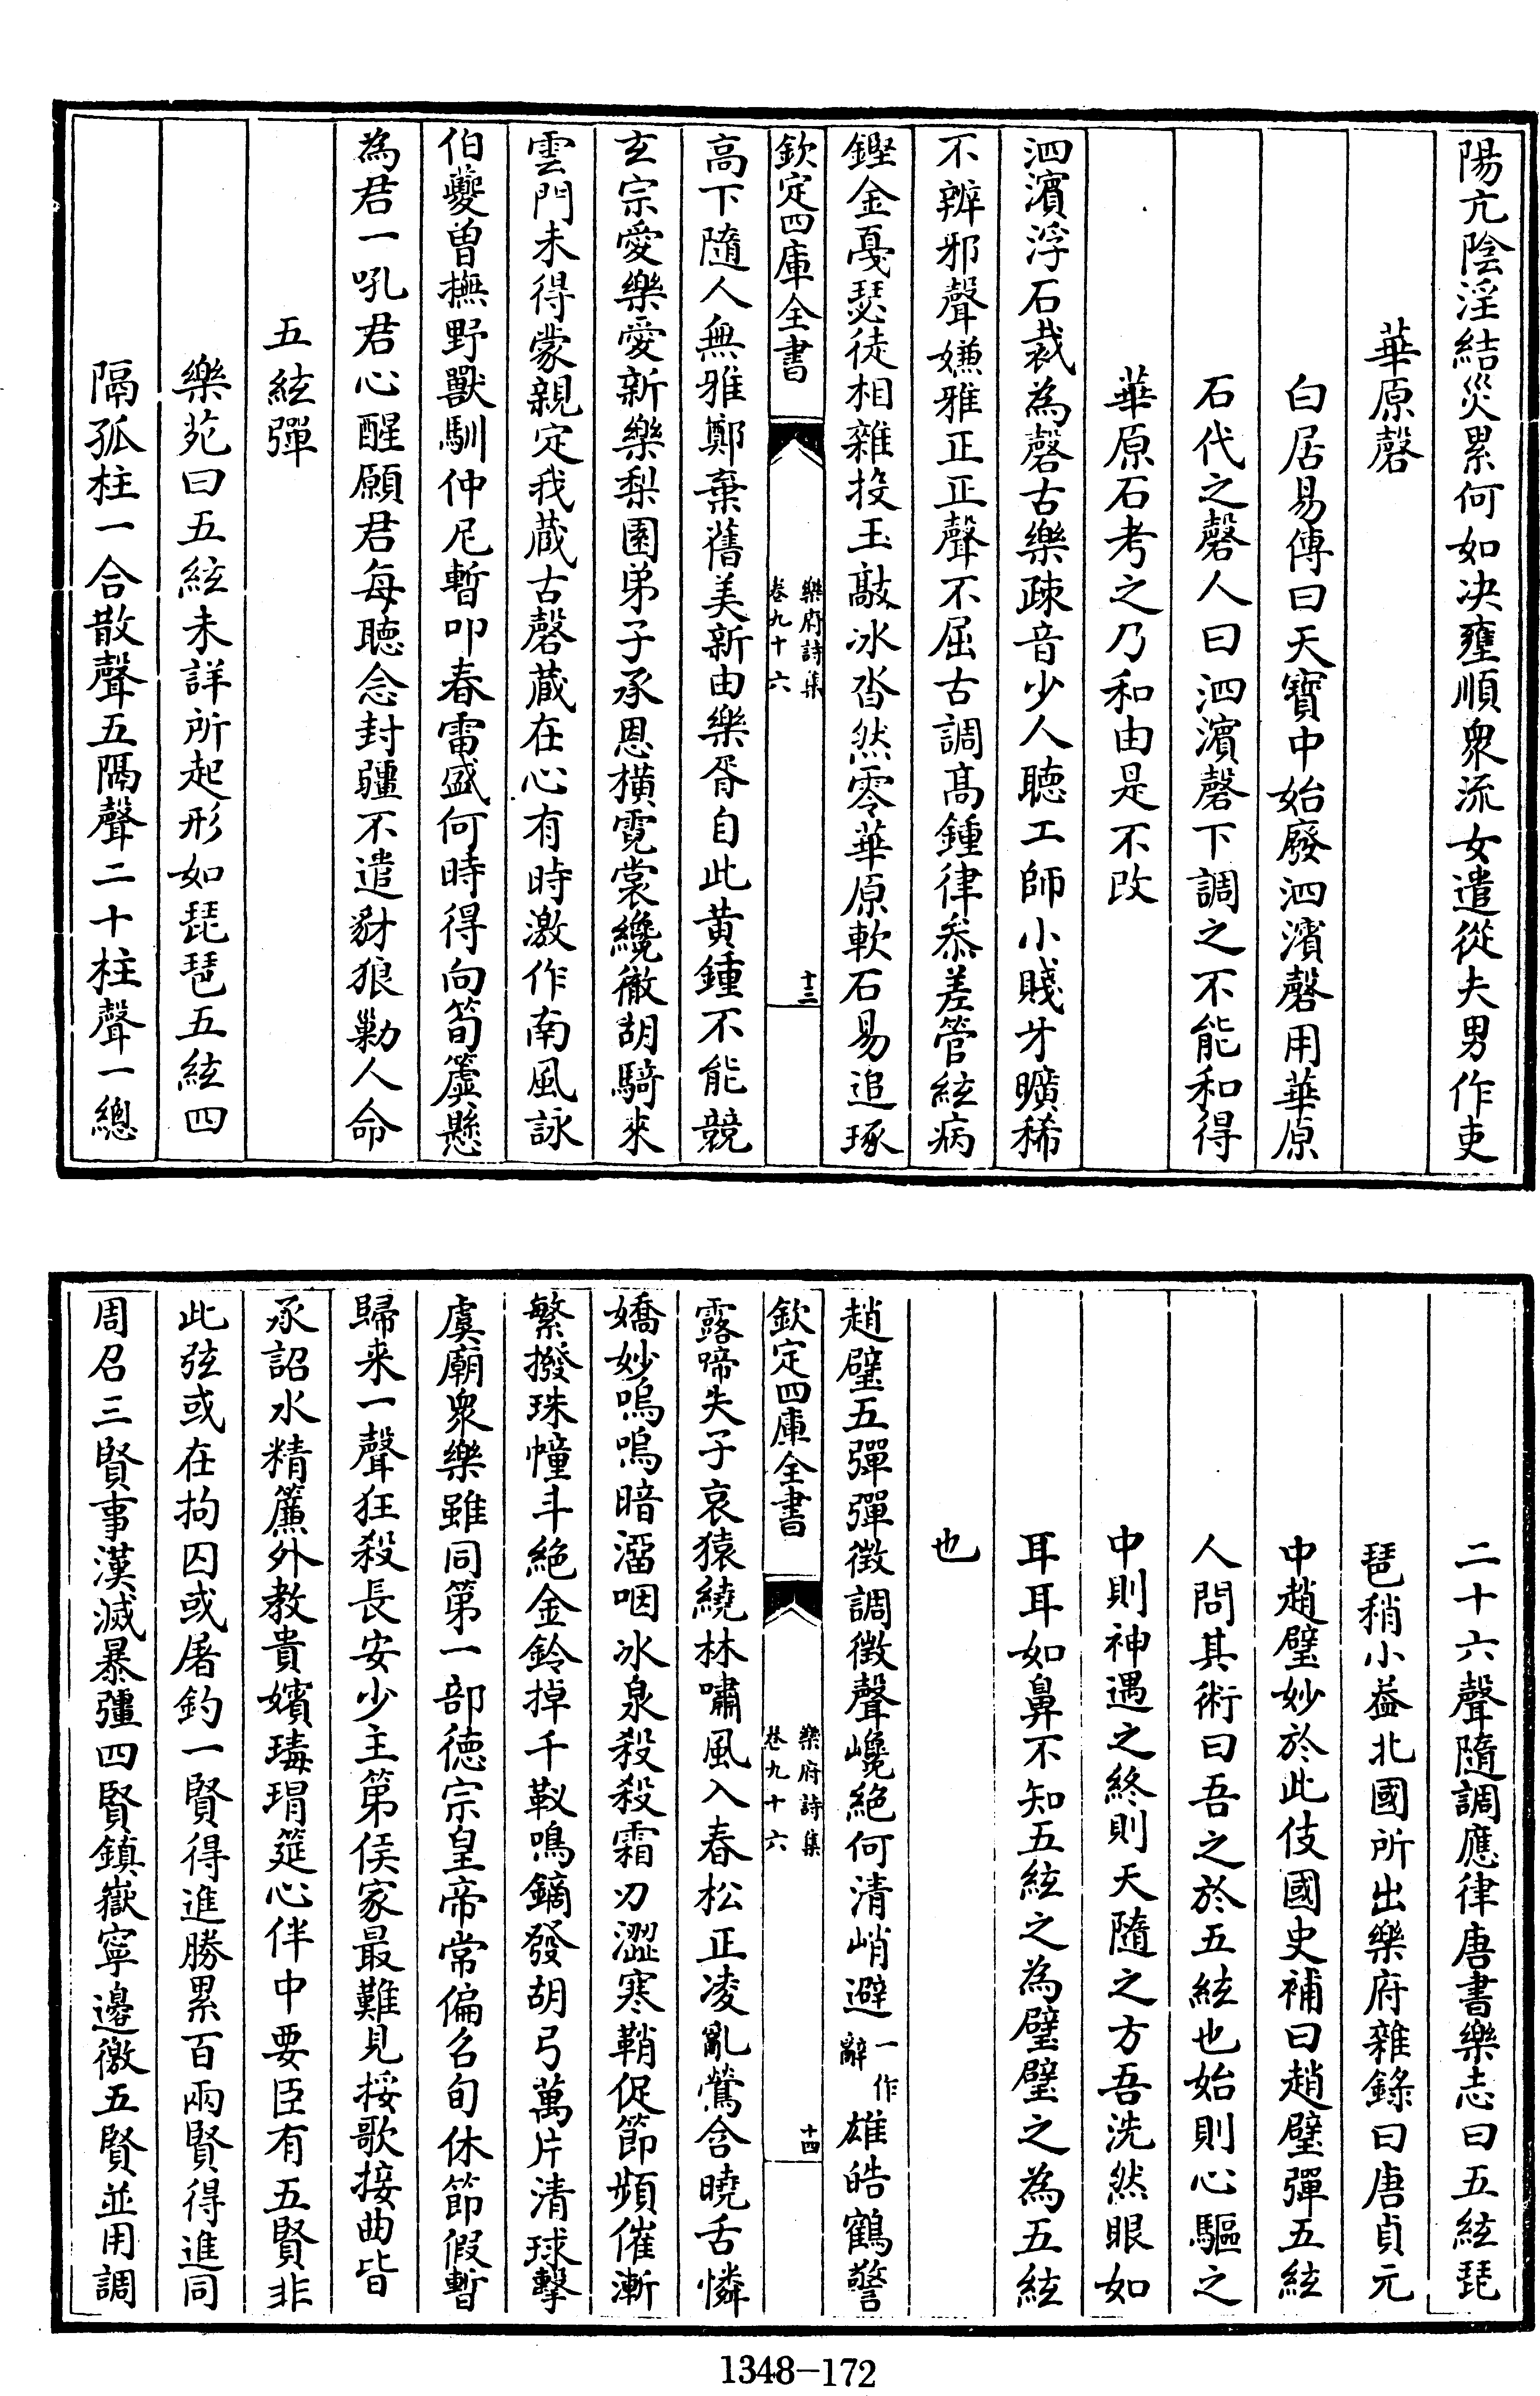 陽亢陰淫結災累何如决壅順衆流女遣從夫男作吏
華原磬
白居易傳曰天寶中始廢泗濱磬用華原
石代之磬人曰泗濱磬下調之不能和得
華原石考之乃和由是不改
泗濱浮石裁為磬古樂疎音少人聽工師小賤牙曠稀
不辨邪聲嫌雅正正聲不屈古調髙鍾律叅差管絃病
鏗金戞瑟徒相雜投玉敲冰沓然零華原軟石易追琢
欽定四庫全書
樂府詩集
卷九十六
十三
高下隨人無雅鄭棄舊美新由樂胥自此黄鍾不能競
玄宗愛樂愛新樂梨園弟子承恩横霓裳纔徹胡騎來
雲門未得蒙親定我蔵古磬蔵在心有時激作南風詠
伯夔曽撫野獸馴仲尼暫叩春雷盛何時得向筍簴懸
為君一吼君心醒願君每聽念封疆不遣豺狼勦人命
五絃彈
樂苑曰五絃未詳所起形如琵琶五絃四
隔孤柱一合散聲五隔聲二十柱聲一總
二十六聲隨調應律唐書樂志曰五絃琵
琶稍小葢北國所出樂府雜錄曰唐貞元
中趙璧妙於此伎國史補曰趙璧彈五絃
人問其術曰吾之於五絃也始則心驅之
中則神遇之終則天隨之方吾洗然眼如
耳耳如鼻不知五絃之為璧璧之為五絃
也
趙璧五彈彈徴調徴聲巉絶何清峭避一作辭雄皓鶴警
欽定四庫全書
樂府詩集
卷九十六
十四
露啼失子哀猿繞林嘯風入春松正凌亂鶯含曉舌憐
嬌妙嗚嗚暗溜咽冰泉殺殺霜刀澀寒鞘促節頻催漸
繁撥珠幢斗絶金鈴掉千靫鳴鏑發胡弓萬片清球擊
虞廟衆樂雖同第一部德宗皇帝常偏召旬休節假暫
歸来一聲狂殺長安少主第侯家最難見挼歌接曲皆
承詔水精簾外教貴嬪瑇瑁筵心伴中要臣有五賢非
此弦或在拘囚或屠釣一賢得進勝累百兩賢得進同
周召三賢事漢滅暴彊四賢鎮嶽寧邊徼五賢並用調
1348-172